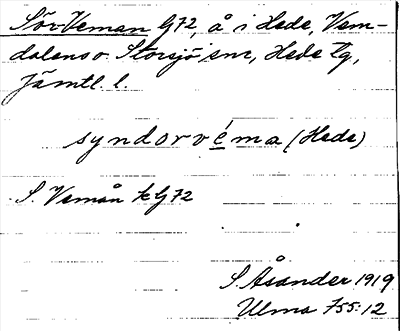 Sör-Veman G72, å i Hede, Vem-
dalens o. Storsjö snr, Hede tg,
Jämtl. l.
syndorvéma (Hede)
S. Vemån kG72
S. Åsander 1919
Ulma 755:12